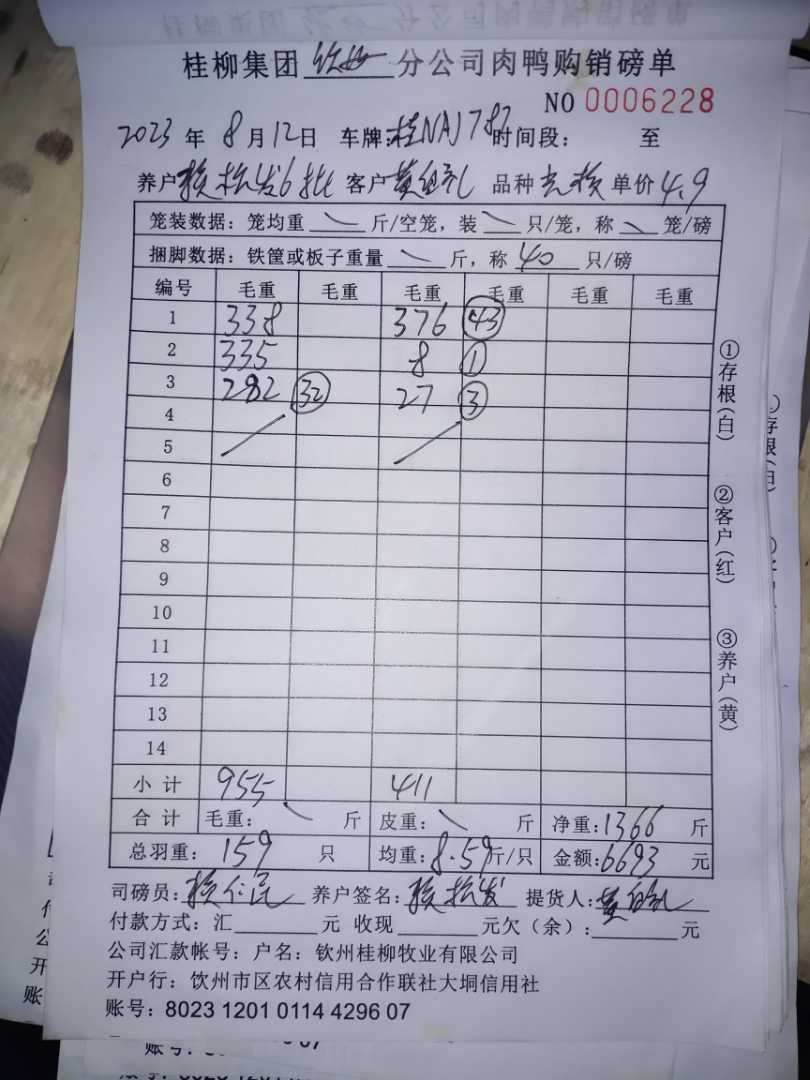 桂柳集团 钦州 分公司肉鸭购销磅单
NO 0006228
2023 年 8 月 12 日 车牌:桂NAJ787 时间段: 至
养户 发6批 客户 黄 礼 品种 单价 4.9
笼装数据: 笼均重 斤/空笼, 装 只/笼, 称 笼/磅
捆脚数据: 铁筐或板子重量 斤, 称 40 只/磅
编号 毛重 毛重 毛重 毛重 毛重 毛重
1 338 376 43
2 335 8 1
3 282 32 27 3
4
5
6
7
8
9
10
11
12
13
14
小计 955 411
合计 毛重: 斤 皮重: 斤 净重: 1366 斤
总羽重: 159 只 均重: 8.59 斤/只 金额: 6693 元
司磅员: 养户签名: 发 提货人: 黄 礼
付款方式: 汇 元 收现 元欠(余): 元
公司汇款帐号: 户名: 钦州桂柳牧业有限公司
开户行: 钦州市区农村信用合作联社大垌信用社
账号: 8023 1201 0114 4296 07
①存根(白)
②客户(红)
③养户(黄)